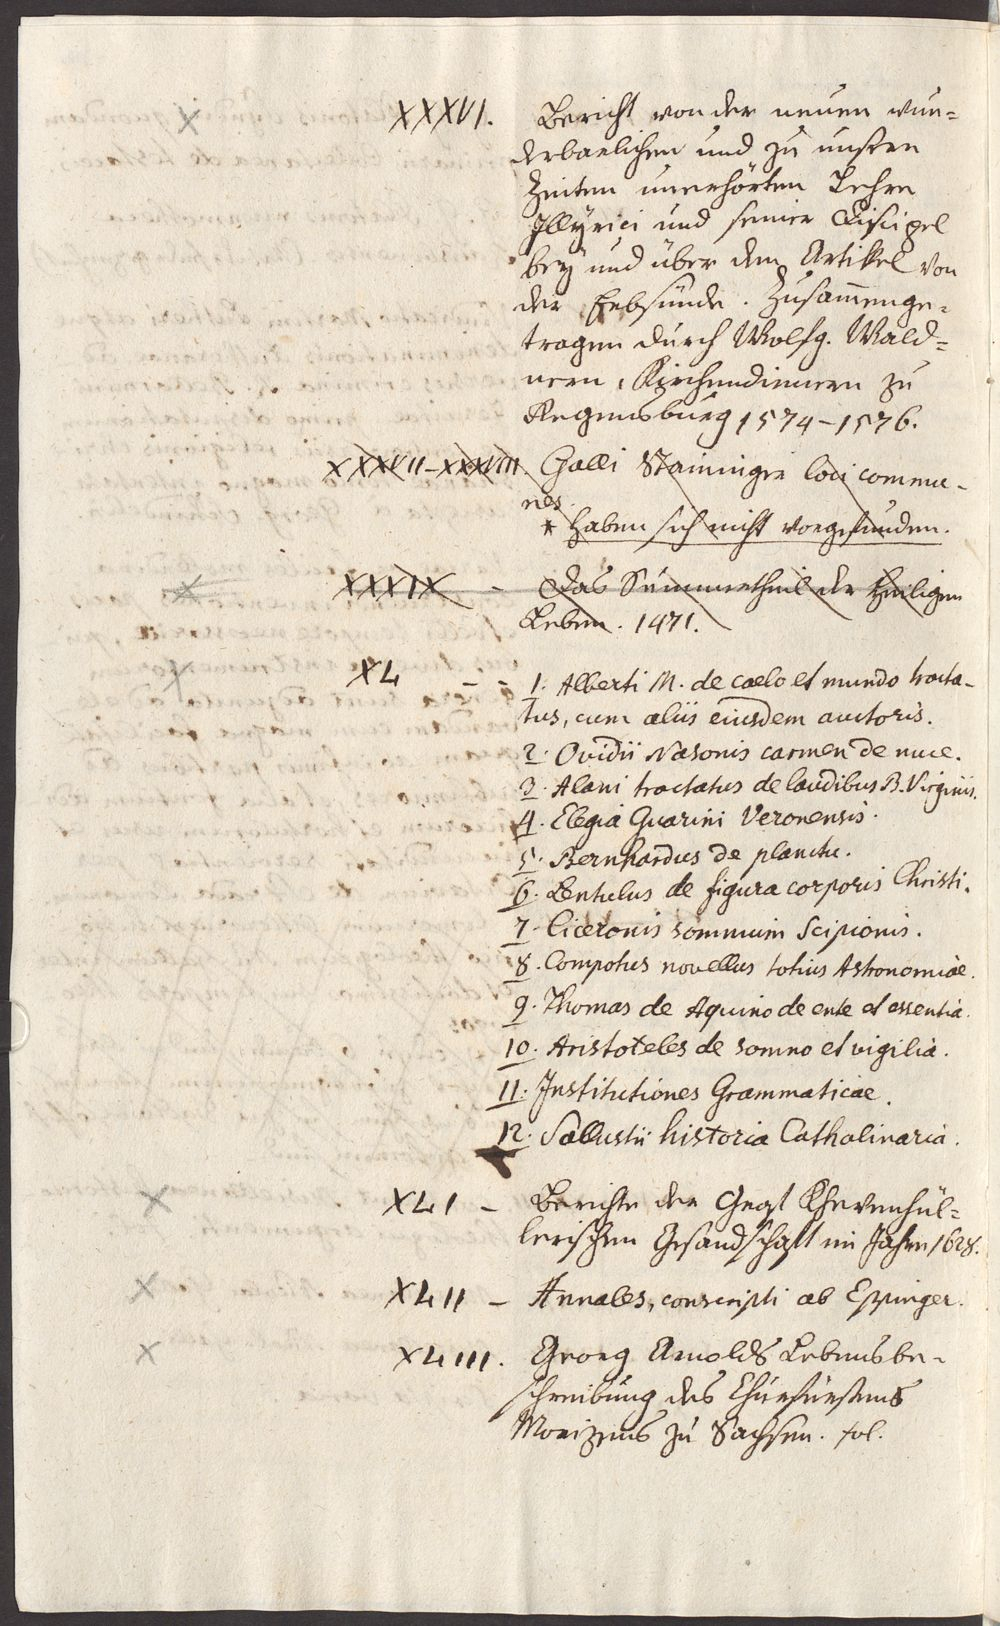 XXXVI. Bericht von der neuen wun=
derbarlichen und zu unsern
Zeiten unerhörten Lehre
Illyrici und seiner Discipel
bey und über dem Artikel von
der Erbsünde. Zusam̅enge=
tragen durch Wolfg. Wald=
nern, Kirchendienern zu
Regensburg 1574-1576.
XXXVII-XXXVIII. Galli Staininger loci commu-
nes
* Haben sich nicht vorgefunden.
XXXIX - Das Summertheil der Heiligen
Leben. 1471.
XL - - 1. Alberti M. de caelo et mundo tracta-
tus, cum aliis eiusdem auctoris.
2. Ovidii Nasonis carmen de nuce.
3. Alani tractatus de laudibus B. Virginis.
4. Elegia Guarini Veronensis.
5. Bernhardus de planctu.
6. Lentulus de figura corporis Christi.
7. Ciceronis somnium Scipionis.
8. Compotus novellus totius Astronomiae.
9. Thomas de Aquino de ente et essentia.
10. Aristoteles de somno et vigilia.
11. Institutiones Grammaticae.
12. Sallustii historia Catholinaria.
XLI - Berichte der Khevenhül=
lerischen Gesandschafft im Jahre 1628.
XLII - Annales, conscripti ab Eppinger.
XLIII. Georg Arnolds Lebensbe-
schreibung des Churfürstens
Morizens zu Sachsen. fol.